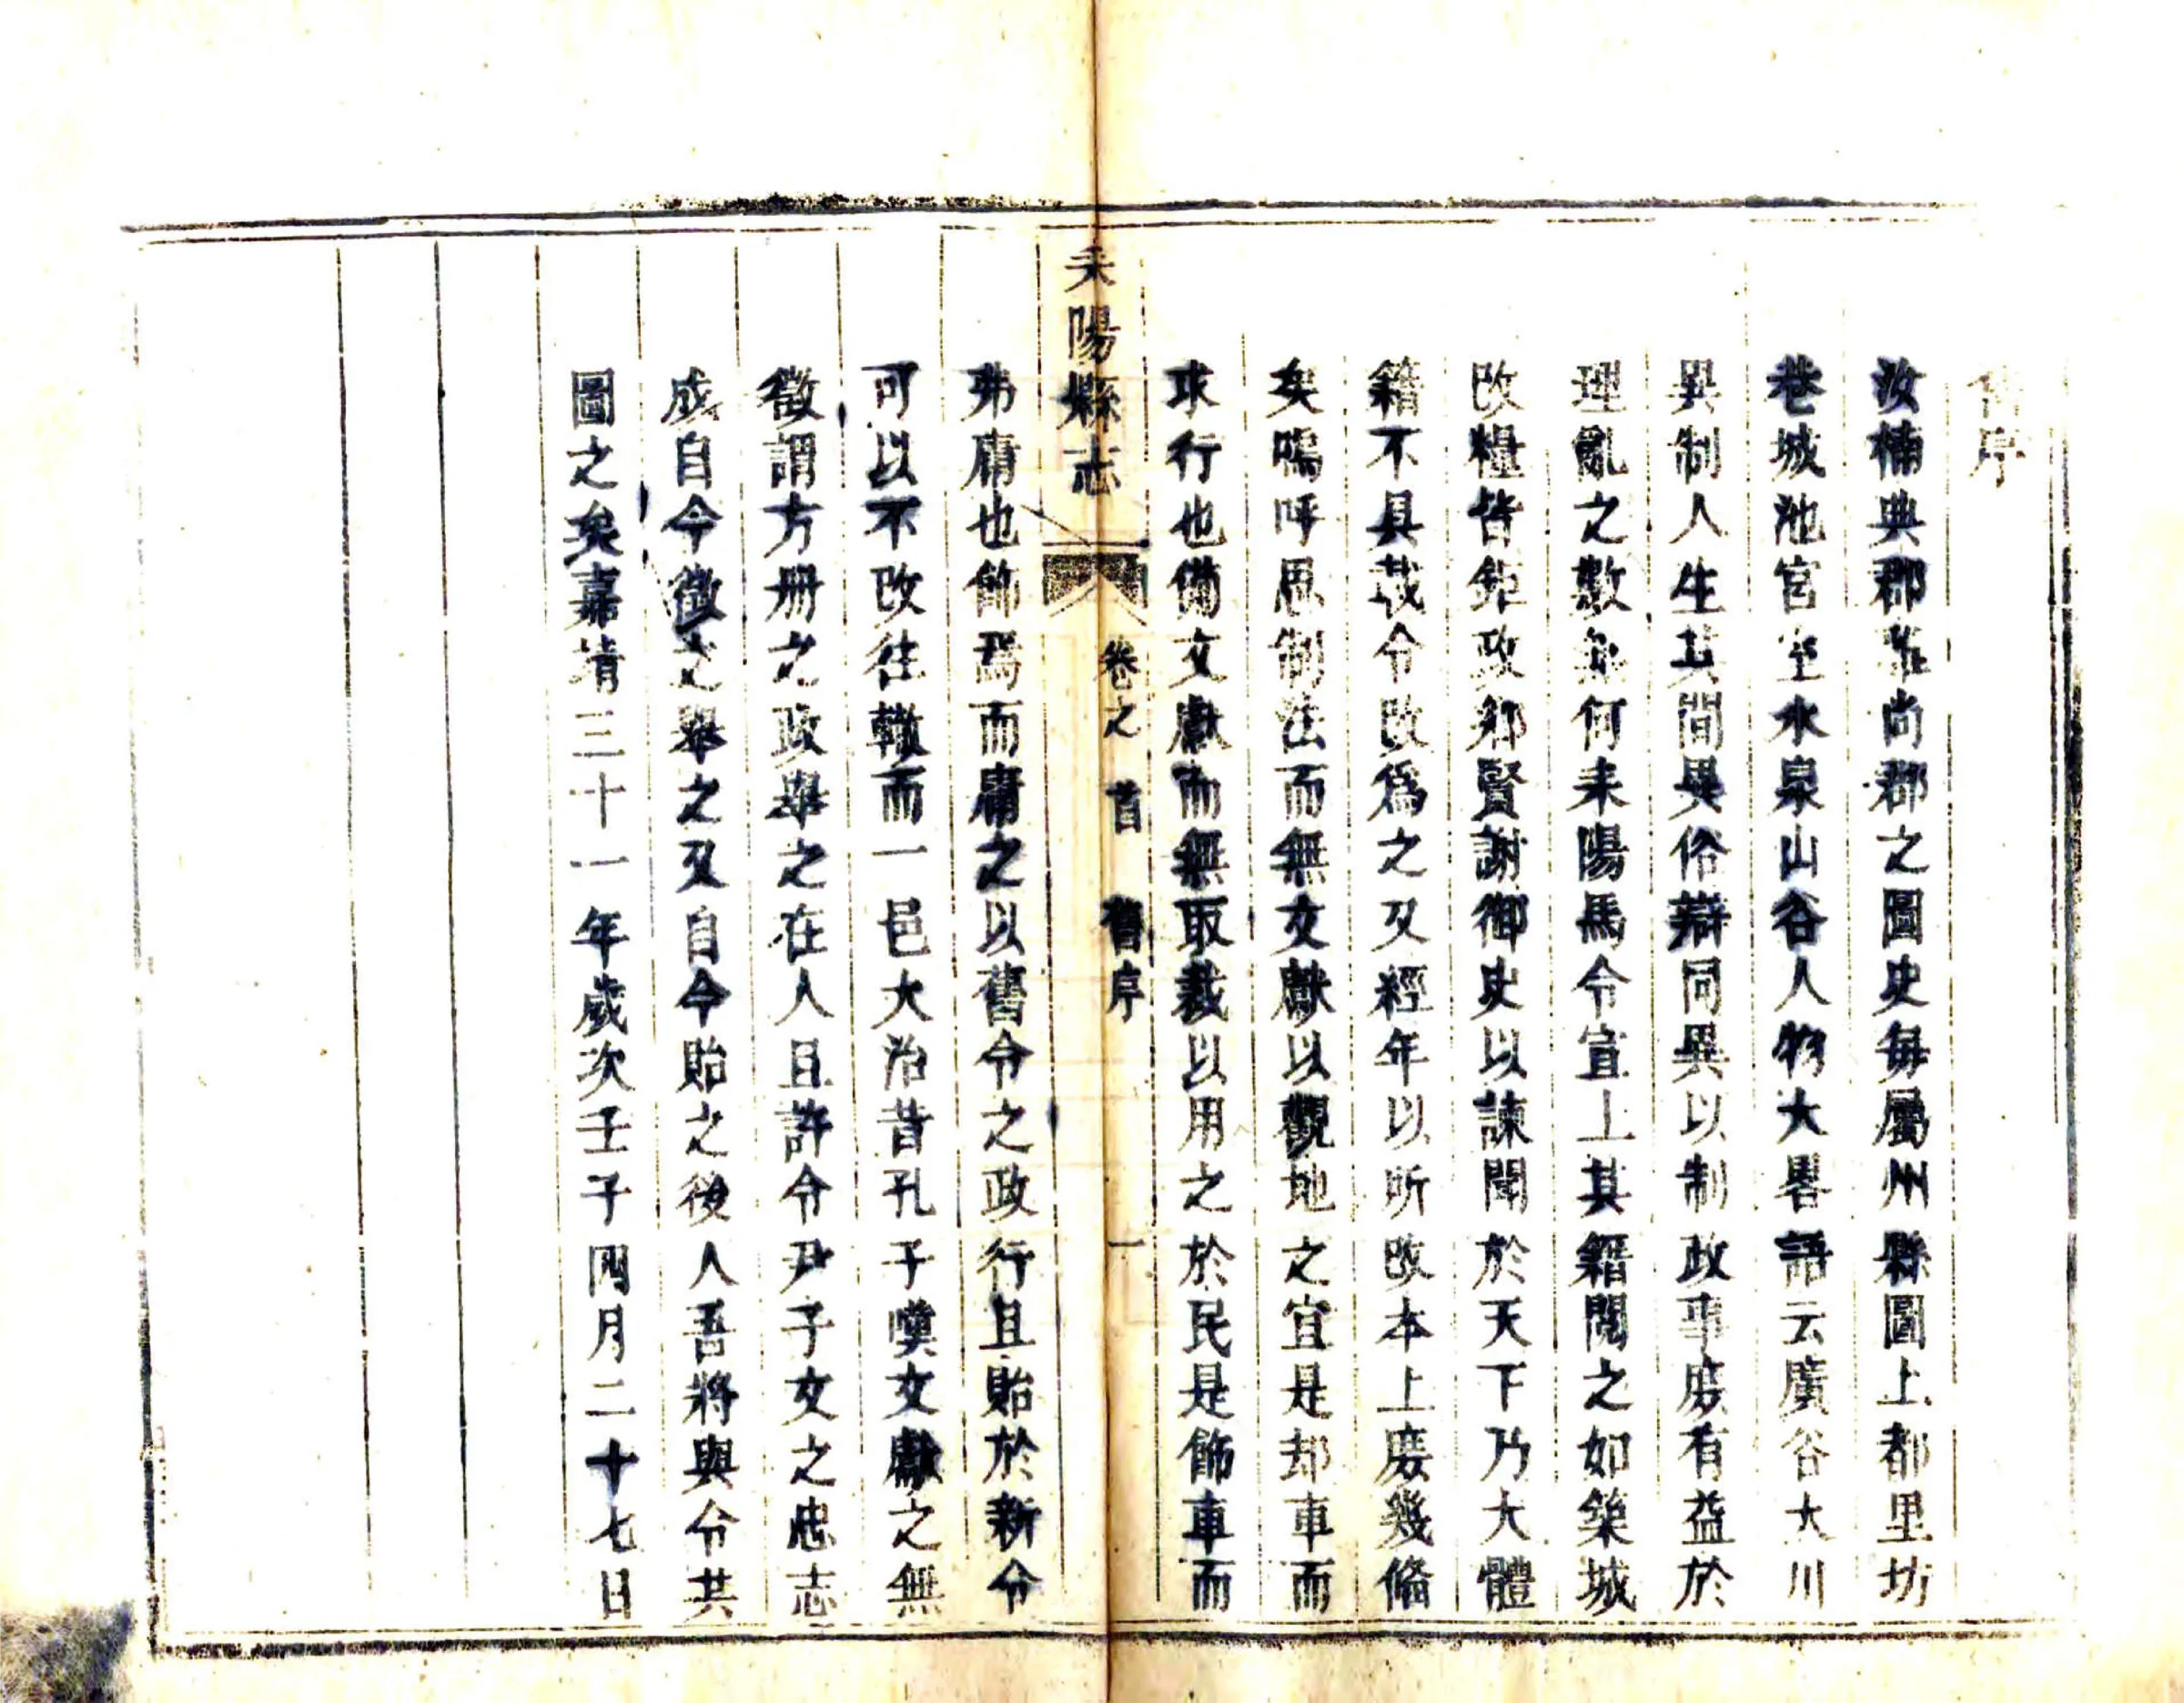 舊序
汝楠典郡雅尚郡之圖史每屬州縣圖上都里坊
巷城池官室水泉山谷人物大畧語云廣谷大川
異制人生其間異俗辯同異以制政事庶有益於
理亂之數無何耒陽馬令宣上其籍閱之如築城
改糧皆鉅政鄉賢謝御史以諫聞於天下乃大體
籍不具載令改為之又經年以所改本上庶幾俻
矣嗚呼思制法而無文獻以觀地之宜是却車而
求行也備文獻而無取裁以用之於民是飾車而
弗庸也飾焉而庸之以舊令之政行且貽於新令
可以不改往轍而一邑大治昔孔子嘆文獻之無
徵謂方册之政舉之在人且許令尹子文之忠志
成自今徵之舉之又自今貽之後人吾將與令共
圖之矣嘉靖三十一年歲次壬子四月二十七日
耒陽縣志 卷之首 舊序 一